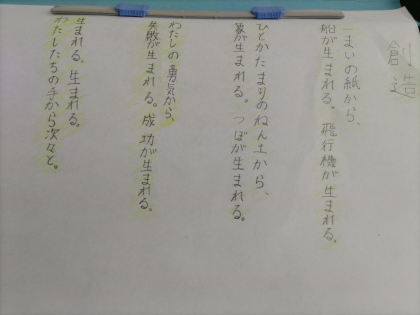 創造
一まいの紙から、
船が生まれる。飛行機が生まれる。
ひとかたまりのねん土から、
象が生まれる。つぼが生まれる。
わたしの勇気から、
失敗が生まれる。成功が生まれる。
生まれる。生まれる。
わたしたちの手から次々と。